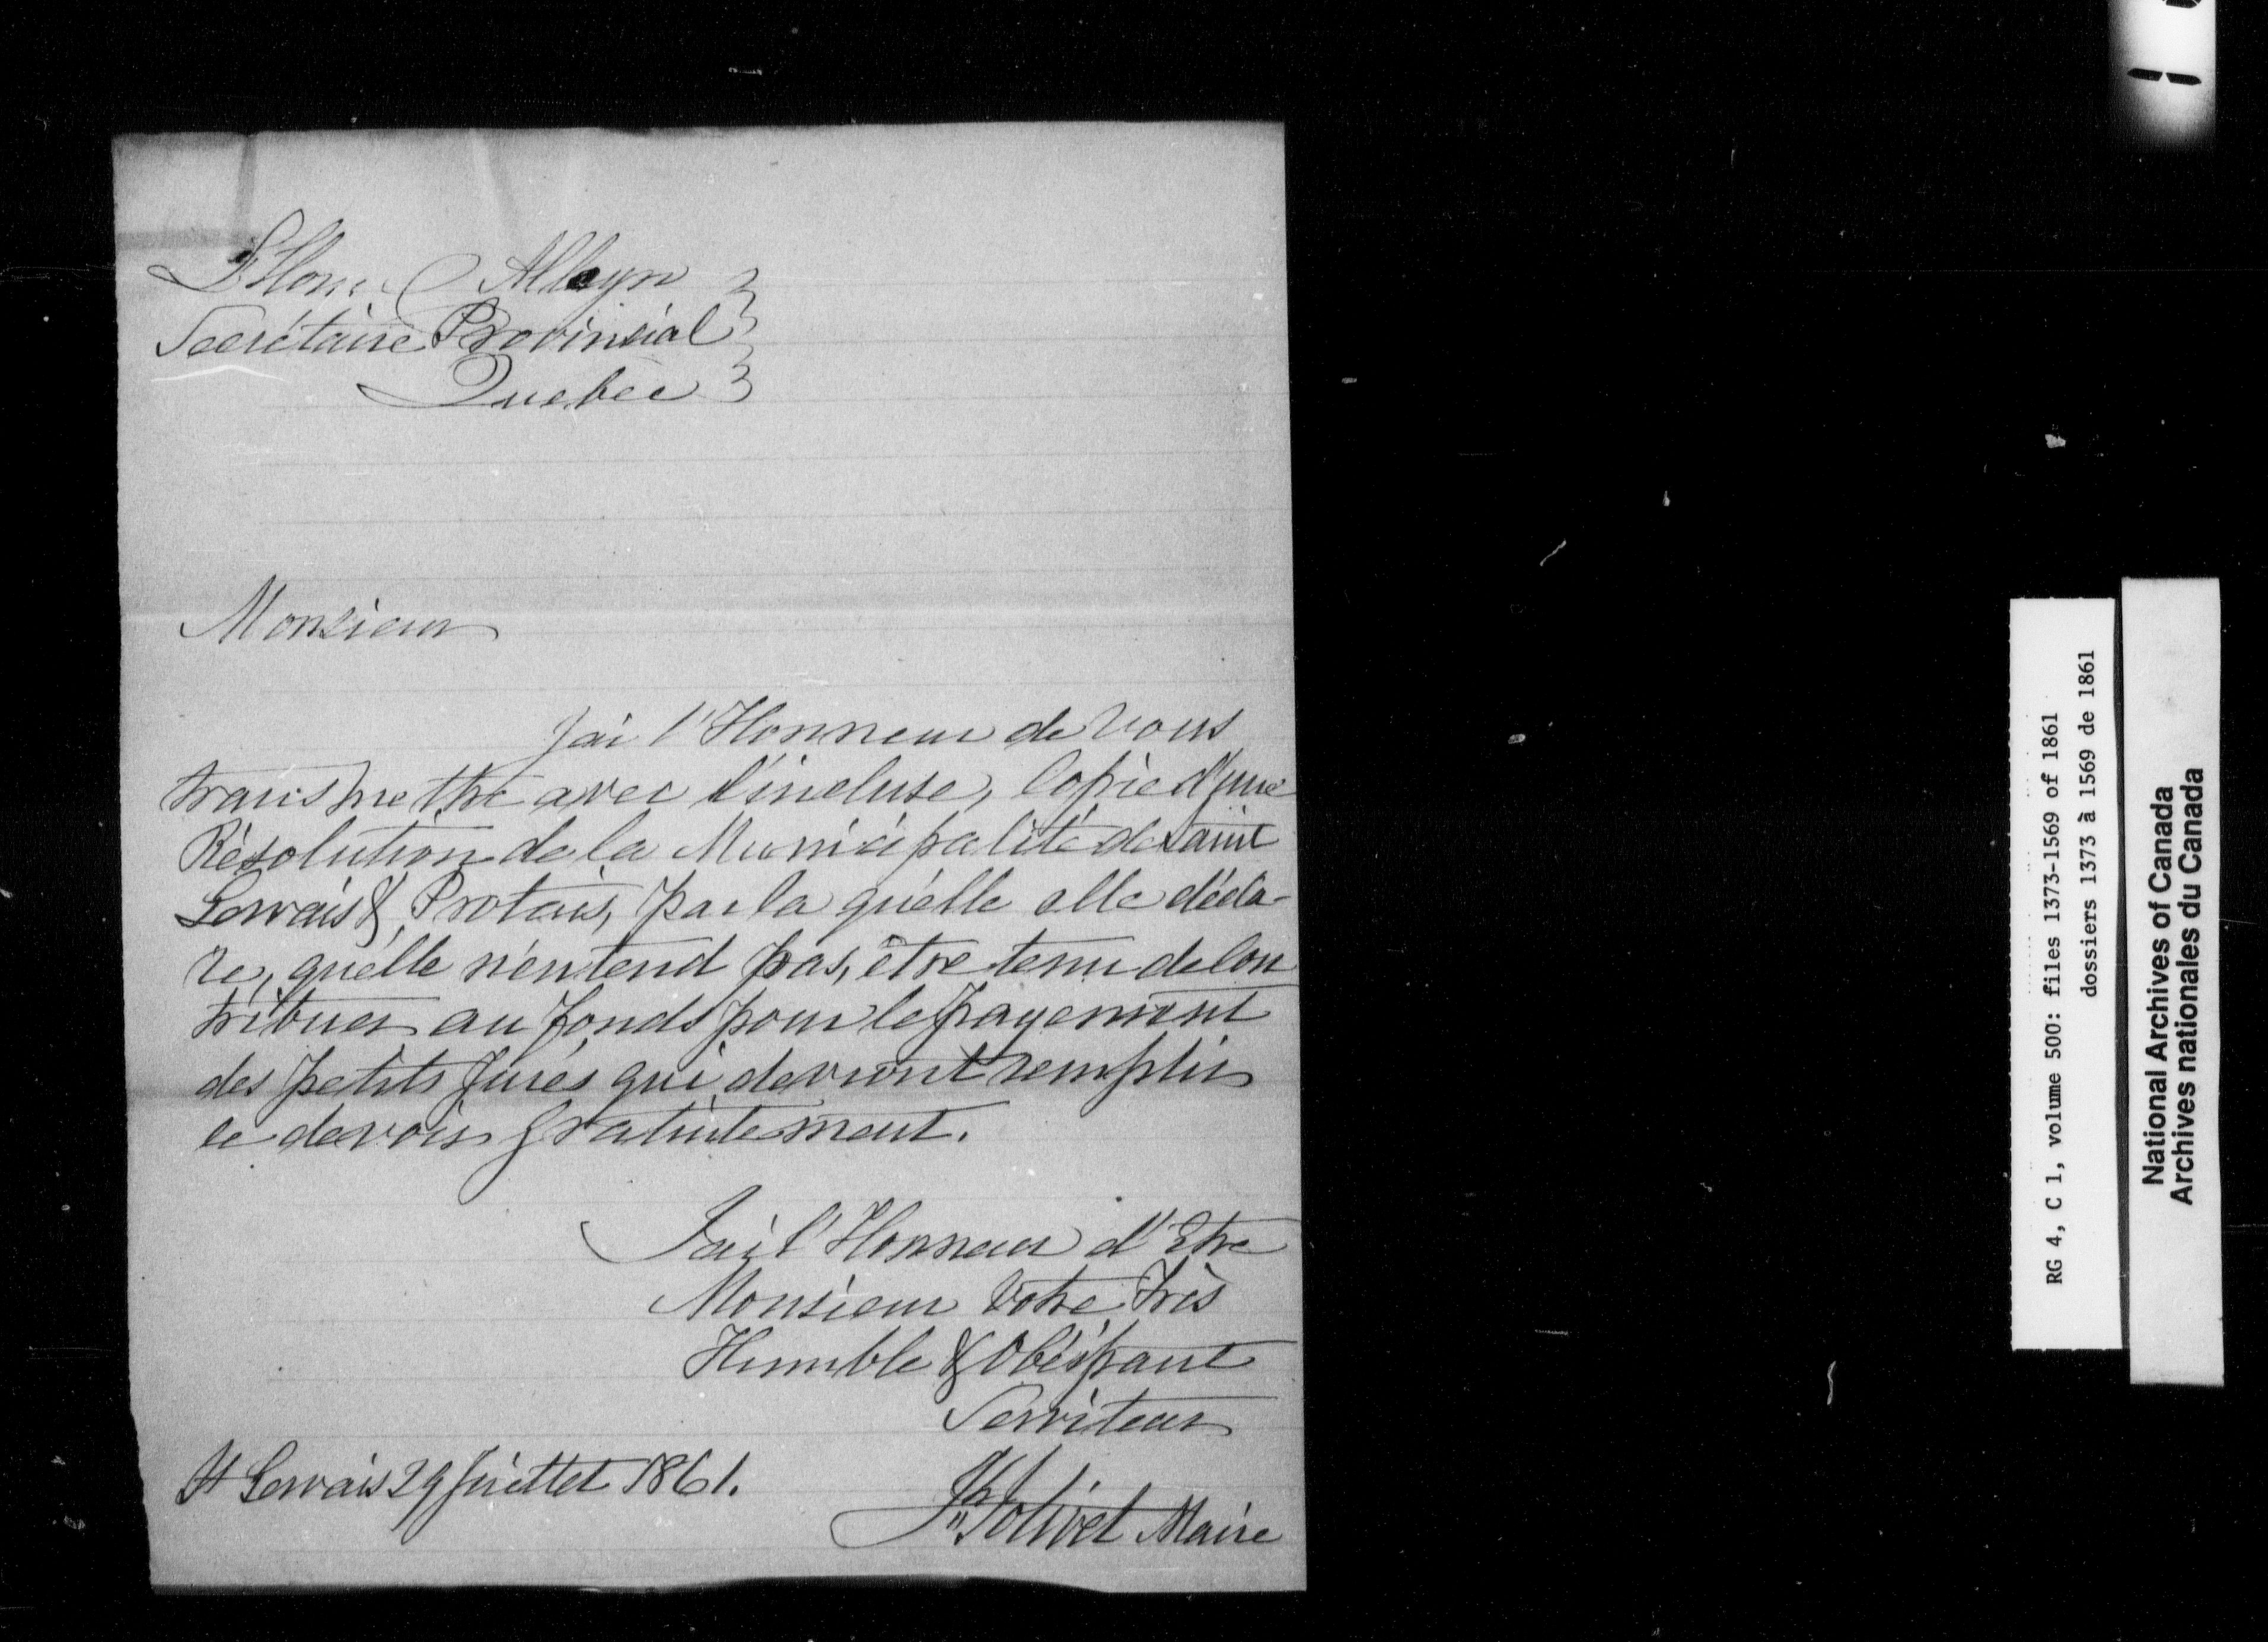 L'Hon. C Alleyn
Secrétaire Provincial
Quebec
Monsieur
J'ai l'Honneur de Vous
transmethre avec l'incluse, Copie d'une
Résolution de la Municipalité de Saint
Gervais & Protais, par la qu'elle elle décla-
re, qu'elle n'entend pas, être tenu de Con
tribuer au fonds pour le payement
des petits Jurés qui devront remplir
ce devoir gratuitement.
J'ai l'Honneur d'Etre
Monsieur Votre Très
Humble & Obéissant
Serviteur
St Gervais 29 Juillet 1861.
Jolivet Maire
RG 4, C 1, volume 500: files 1373-1569 of 1861
dossiers 1373 à 1569 de 1861
National Archives of Canada
Archives nationales du Canada